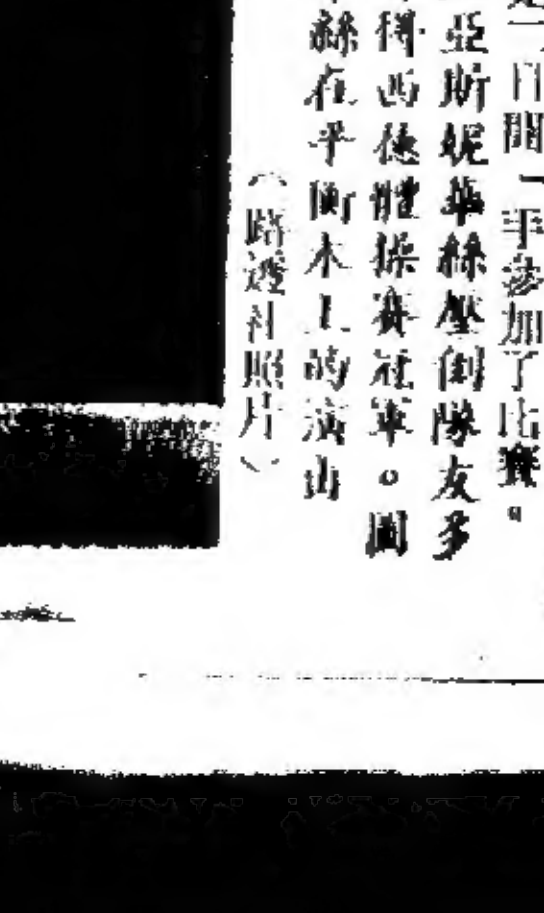 一日間「手參加了比賽。
亞斯妮華絲壓倒隊友多
得西德體操賽冠軍。圖
絲在平衡木上的演出
（路透社照片）